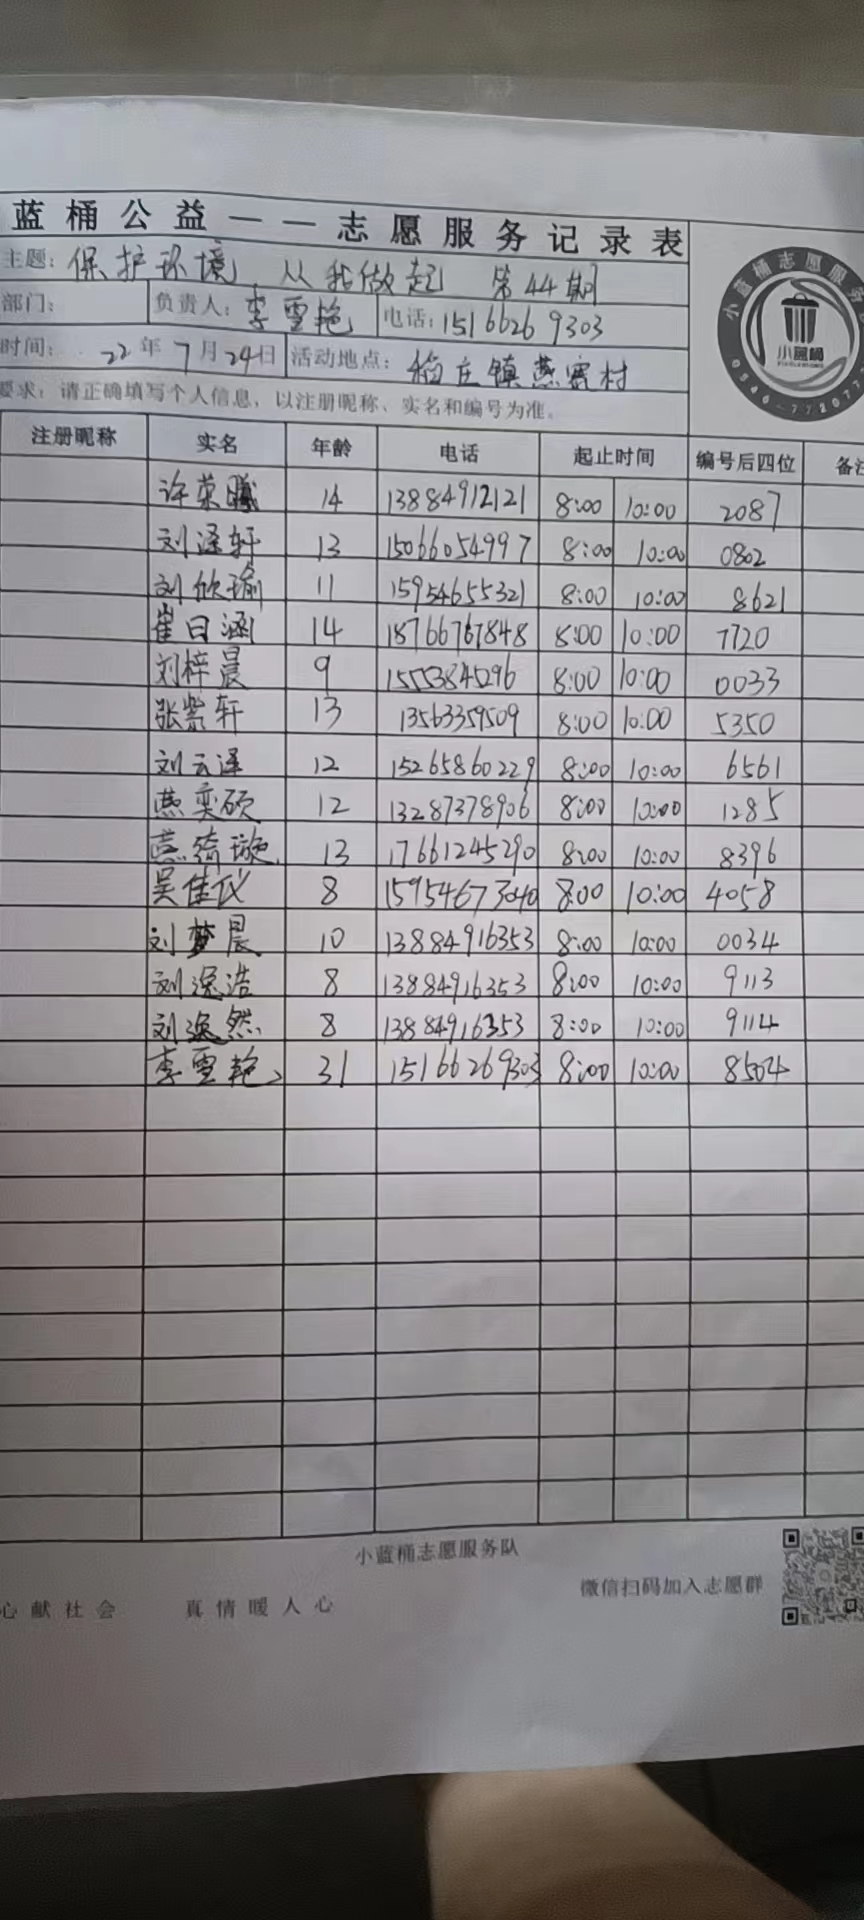 蓝桶公益——志愿服务记录表
主题：保护环境，从我做起 第44期
部门： 负责人：李雪艳 电话：15166269303
时间：22年7月24日 活动地点：稻庄镇燕窝村
要求：请正确填写个人信息，以注册昵称、实名和编号为准。
小蓝桶志愿服务
小蓝桶
0546-772077
注册昵称 实名 年龄 电话 起止时间 编号后四位 备注
许荣曦 14 13884912121 8:00 10:00 2087
刘泽轩 13 15066054997 8:00 10:00 0802
刘欣瑜 11 15954655321 8:00 10:00 8621
崔日涵 14 18766767848 8:00 10:00 7720
刘梓晨 9 15553845296 8:00 10:00 0033
张紫轩 13 13563359509 8:00 10:00 5350
刘云泽 12 15265860229 8:00 10:00 6561
燕奕硕 12 13287378906 8:00 10:00 1285
燕绮璇 13 17661245290 8:00 10:00 8396
吴佳仪 8 15954673040 8:00 10:00 4058
刘梦晨 10 13884916353 8:00 10:00 0034
刘逸浩 8 13884916353 8:00 10:00 9113
刘逸然 8 13884916353 8:00 10:00 9114
李雪艳 31 15166269303 8:00 10:00 8504
小蓝桶志愿服务队
微信扫码加入志愿群
心献社会 真情暖人心